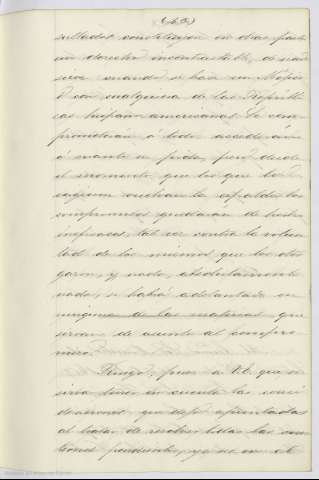 sultados constituyen en otras partes
un derecho incontestable, de nada
sirve cuando se hace un
con cualquiera de las Repúbli
cas hispano americanas. Se com
prometerán á todo, accederán
á cuanto se pida, pero desde
el momento que los que los
vuelvan la espalda los
compromisos quedarán de hecho
ineficaces, tal vez contra la volun
tad de los mismos que los otor
garon, y nada, absolutamente
nada, se habrá adelantado en
ninguna de las materias que
sirvan de asunto al compro
miso.
Ruego, pues, a V.E. que se
sirva tener en cuenta las consi
deraciones que dejo apuntadas
al tratar de resolver todas las cues
tiones pendientes, ya sea en el